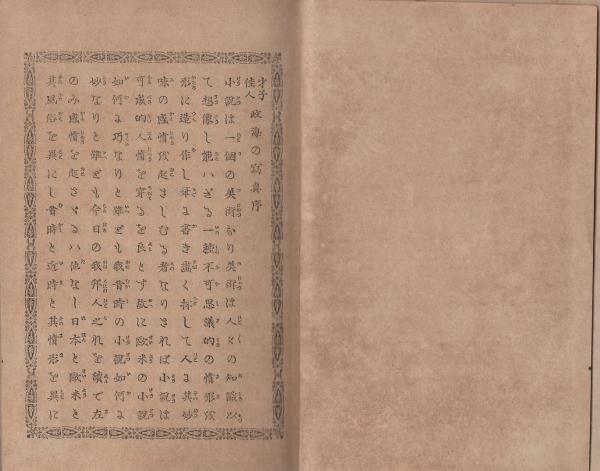 才子佳人 政海の寫眞序
小説は一個の美術なり美術は人々の知識
て想像し能ハざる一種不可思議的の情形
形に造り作し筆に書き畫く 而して人に其妙
味の感情を起さしむる者なりされば小説は
可成的人情を穿るを良とす故に歐米の小説
如何に巧なりと雖ども我昔時の小説如何に
妙なりと雖ども今日の我邦人之れを讀で左
のみ感情を起さゞるハ他なし日本と歐米と
其風俗を異にし昔時と近時と其情形を異に